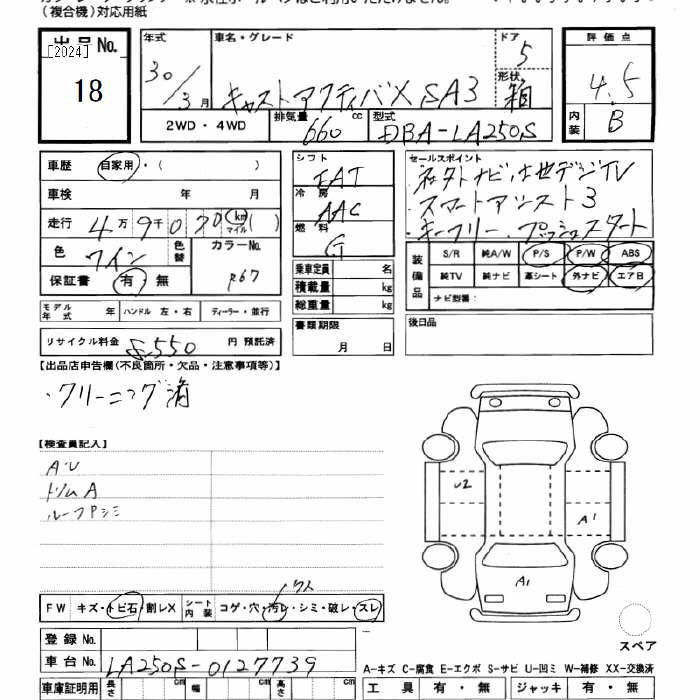 (複合機)対応用紙
出品No.
[2024]
18
年式
30/3月
車名・グレード
キャストアクティバX SA3
ドア
5
形状
箱
評価点
4.5
内装
B
2WD・4WD
排気量
660 cc
型式
DBA-LA250S
車歴 自家用・( )
車検 年 月
走行 4万9千070 km マイル ( )
色 ワイン
色替
カラーNo.
R67
保証書 有・無
シフト
FAT
冷房
AAC
燃料
G
乗車定員 名
積載量 kg
総重量 kg
セールスポイント
社外ナビ、地デジTV
・スマートアシスト3
・キーフリー、プッシュスタート
装備品
S/R 純A/W P/S P/W ABS
純TV 純ナビ 革シート 外ナビ エアB
ナビ型番:
モデル年式 年 ハンドル 左・右 ディーラー・並行
書類期限
月 日
後日品
リサイクル料金 8,550 円 預託済
【出品店申告欄(不良箇所・欠品・注意事項等)】
・クリーニング済
【検査員記入】
AU
トリムA
ルーフPシミ
FW キズ・トビ石・割レX シート内装 コゲ・穴・汚レ・シミ・破レ・スレ
U2
A1
A1
スペア
登録No.
車台No. LA250S-0127739
A-キズ C-腐食 E-エクボ S-サビ U-凹ミ W-補修 XX-交換済
車庫証明用 長さ cm 幅 cm 高さ cm
工具 有・無 ジャッキ 有・無